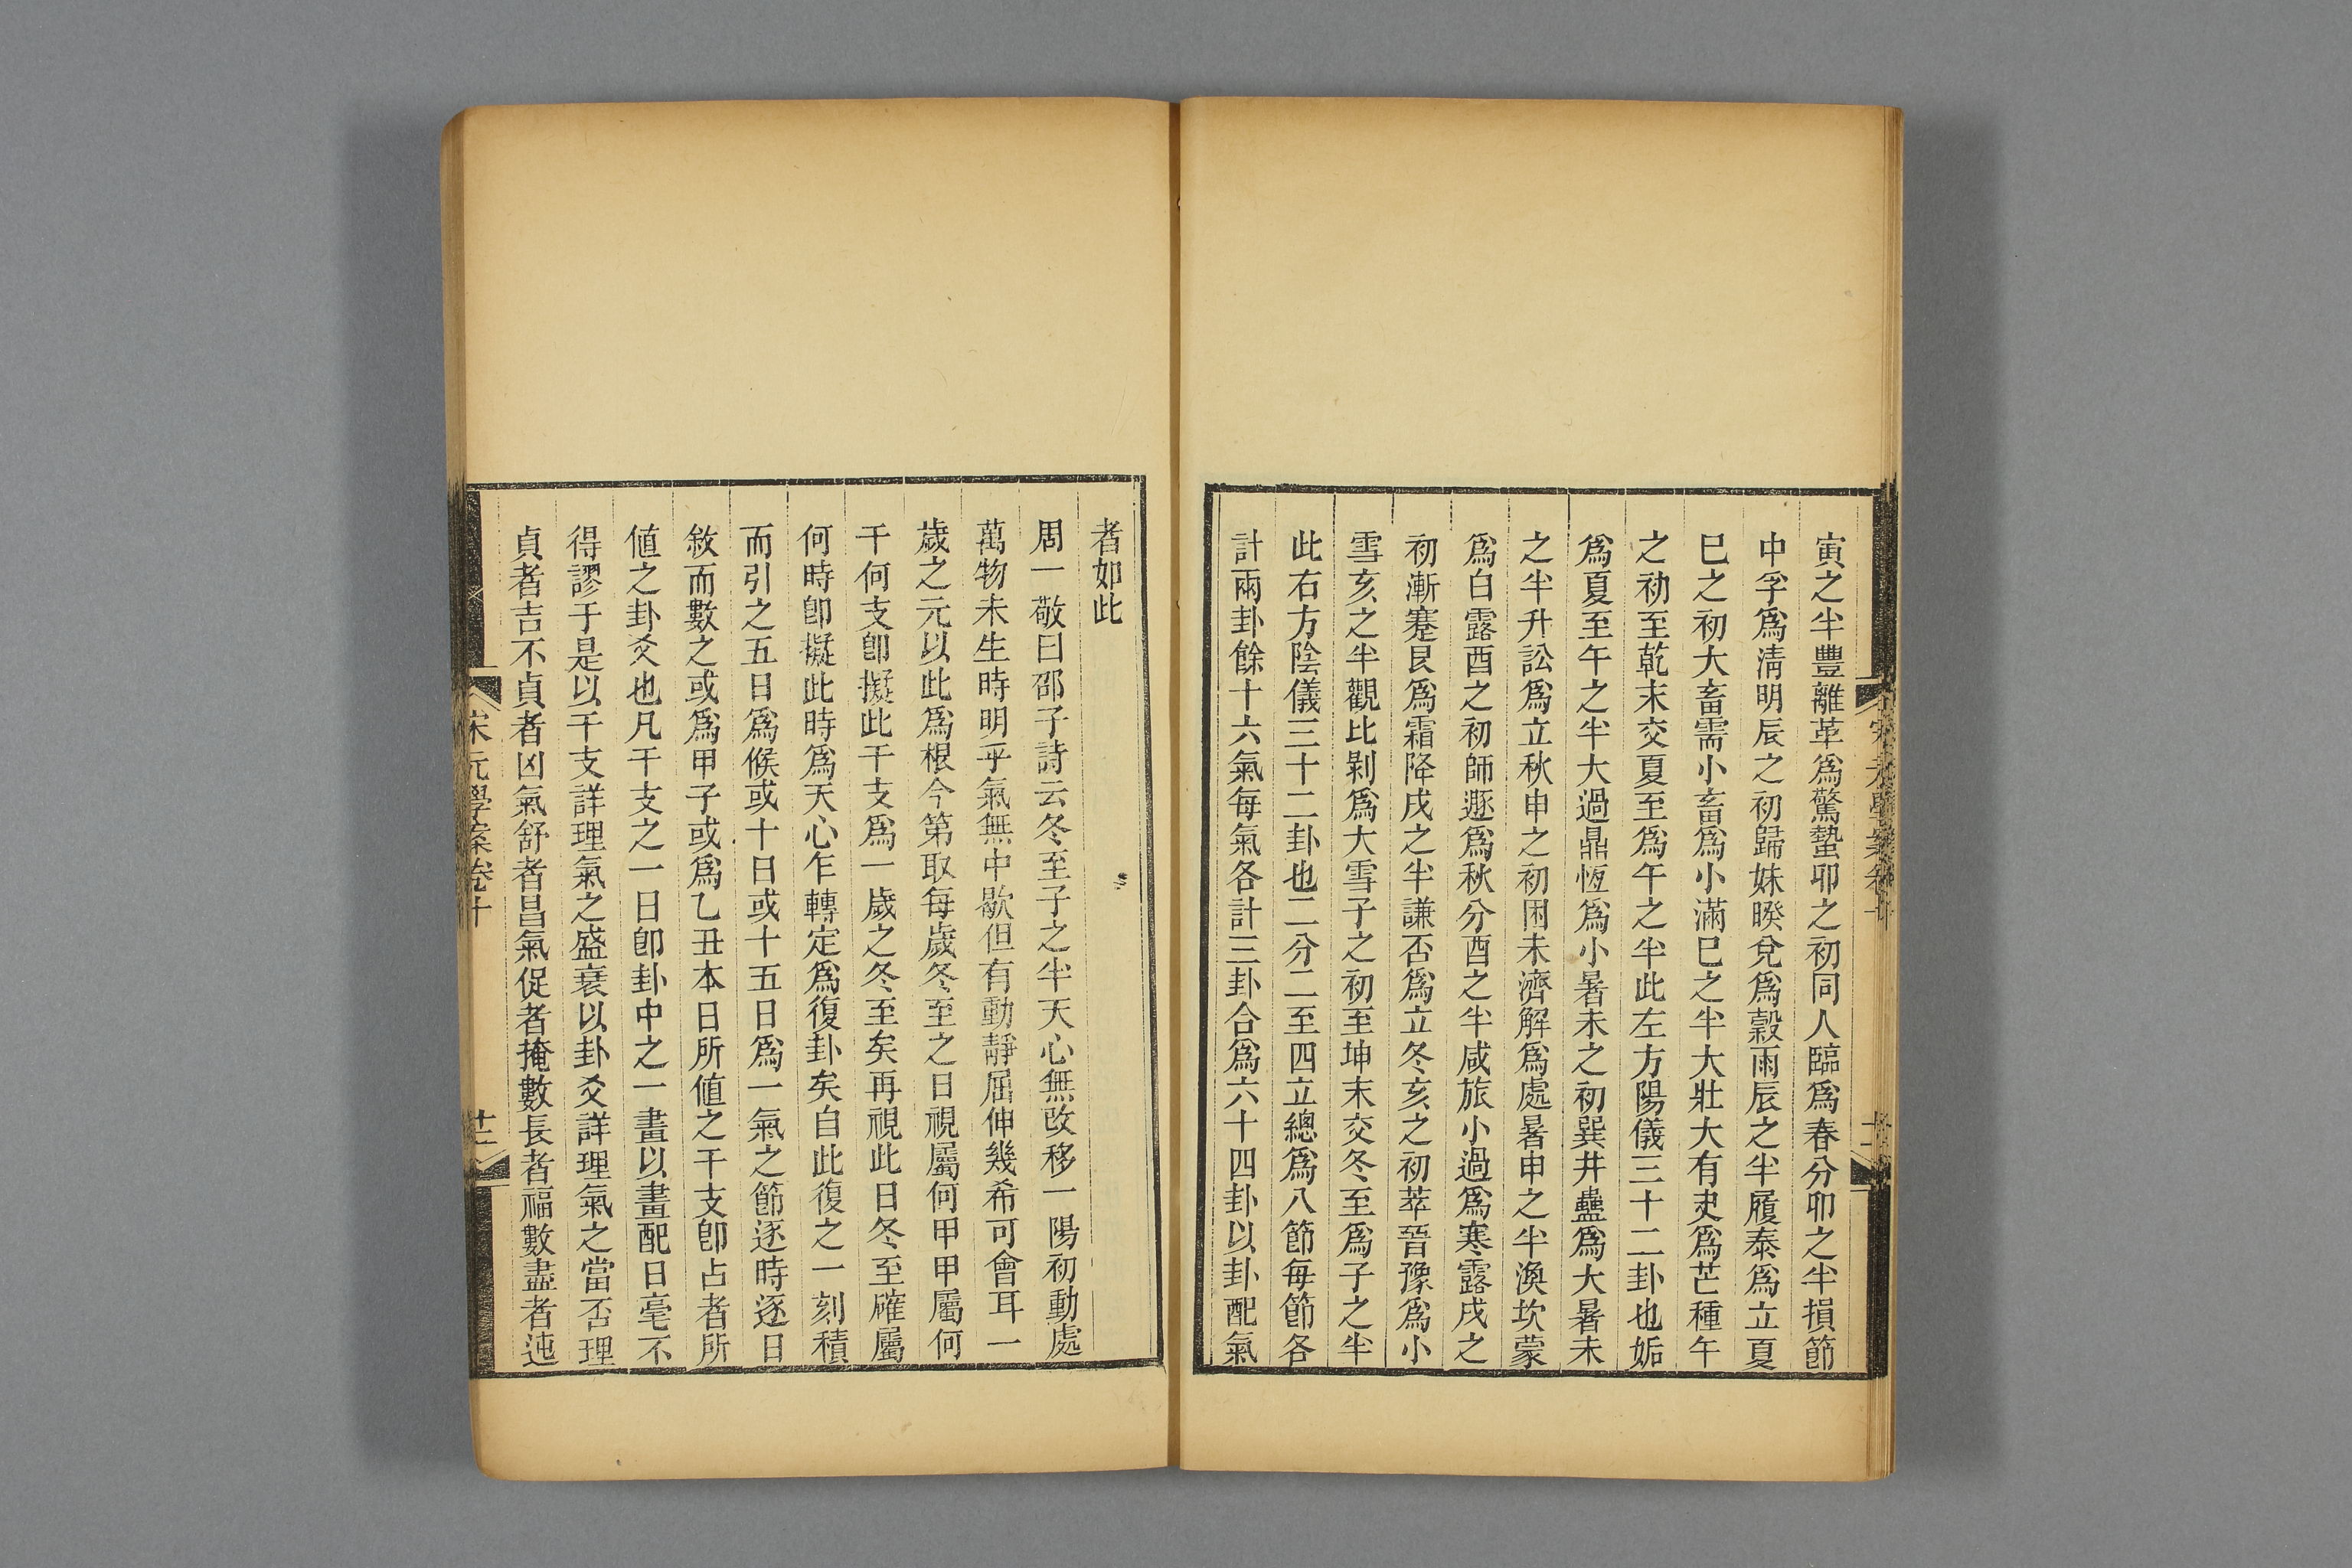 寅之半豐離革爲驚蟄卯之初同人臨爲春分卯之半損節
中孚爲淸明辰之初歸妹睽兌爲穀雨辰之半履泰爲立夏
巳之初大畜需小畜爲小滿巳之半大壯大有夬爲芒種午
之初至乾末交夏至爲午之半此左方陽儀三十二卦也姤
爲夏至午之半大過鼎恆爲小暑未之初巽井蠱爲大暑未
之半升訟爲立秋申之初困未濟解爲處暑申之半渙坎蒙
爲白露酉之初師遯爲秋分酉之半咸旅小過爲寒露戌之
初漸蹇艮爲霜降戌之半謙否爲立冬亥之初萃晉豫爲小
雪亥之半觀比剝爲大雪子之初至坤末交冬至爲子之半
此右方陰儀三十二卦也二分二至四立總爲八節每節各
計兩卦餘十六氣每氣各計三卦合爲六十四卦以卦配氣
者如此
周一敬曰邵子詩云冬至子之半天心無改移一陽初動處
萬物未生時明乎氣無中歇但有動靜屈伸幾希可會耳一
歲之元以此爲根今第取每歲冬至之日視屬何甲甲屬何
干何支卽擬此干支爲一歲之冬至矣再視此日冬至確屬
何時卽擬此時爲天心乍轉定爲復卦矣自此復之一刻積
而引之五日爲候或十日或十五日爲一氣之節逐時逐日
敘而數之或爲甲子或爲乙丑本日所値之干支卽占者所
値之卦爻也凡干支之一日卽卦中之一畫以畫配日毫不
得謬于是以干支詳理氣之盛衰以卦爻詳理氣之當否理
貞者吉不貞者凶氣舒者昌氣促者掩數長者福數盡者迍
宋元學案卷十